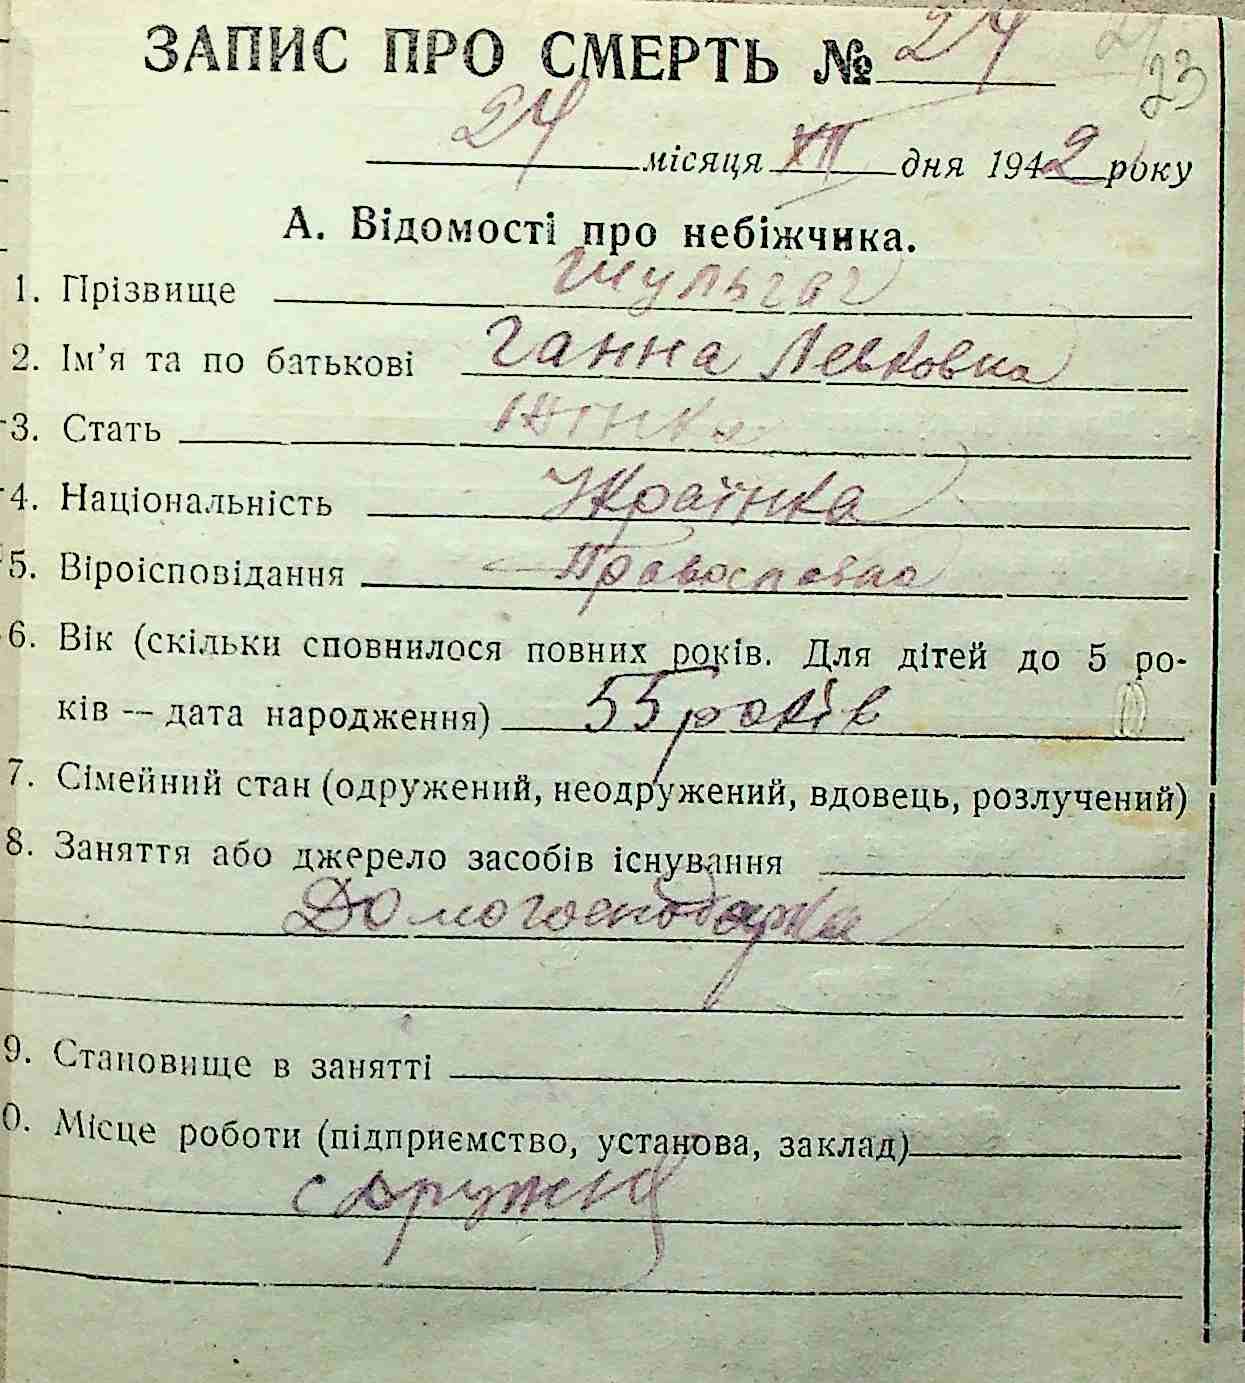 ЗАПИС ПРО СМЕРТЬ № 24
23
24 місяця XII дня 1942 року
А. Відомості про небіжчика.
1. Прізвище Шульгач
2. Ім’я та по батькові Ганна Левковна
3. Стать жінка
4. Національність Українка
5. Віроісповідання Православна
6. Вік (скільки сповнилося повних років. Для дітей до 5 ро-
ків — дата народження) 55 років
7. Сімейний стан (одружений, неодружений, вдовець, розлучений)
8. Заняття або джерело засобів існування
Домогосподарка
9. Становище в занятті
0. Місце роботи (підприємство, установа, заклад)